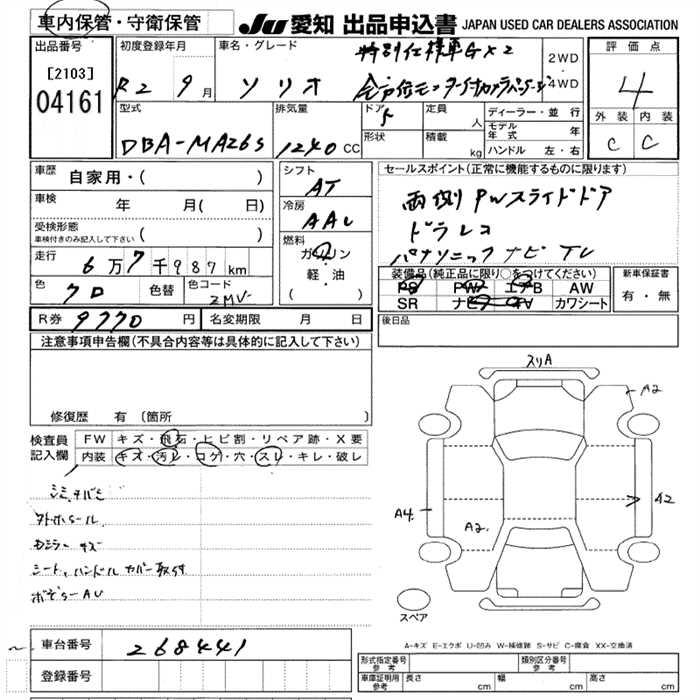 車内保管・守衛保管
JU 愛知 出品申込書 JAPAN USED CAR DEALERS ASSOCIATION
出品番号
[2103]
04161
初度登録年月
R2 9月
車名・グレード
ソリオ
特別仕様車G×2
2WD
・
4WD
評価点
4
外装 内装
C C
型式
DBA-MA26S
排気量
1240 CC
ドア 5
形状
定員 人
積載 kg
ディーラー・並行
モデル年式 年
ハンドル 左・右
車歴 自家用・( )
車検 年 月( 日)
受検形態
車検付きのみ記入して下さい ( )
走行 6万7千987km
色 クロ 色替
色コード ZMV
シフト
AT
冷房
AAC
燃料
ガソリン
・
軽・油
( )
セールスポイント(正常に機能するものに限ります)
両側PWスライドドア
ドラレコ
パナソニックナビTV
装備品(純正品に限り○をつけてください)
PS PW エアB AW
SR ナビ TV カワシート
新車保証書
有・無
R券 9770 円 名変期限 月 日
後日品
注意事項申告欄(不具合内容等は具体的に記入して下さい)
修復歴 有(箇所
検査員
記入欄
FW キズ・飛石・ヒビ割・リペア跡・X要
内装 キズ・汚レ・コゲ・穴・スレ・キレ・破レ
シート、ハンドルカバー取付
スリA
A2
A4
A2
A2
スペア
A-キズ E-エクボ U-凹み W-補修跡 S-サビ C-腐食 XX-交換済
車台番号 268441
登録番号
形式指定番号
参考
類別区分番号
参考
車庫証明用
参考
長さ cm 幅 cm 高さ cm